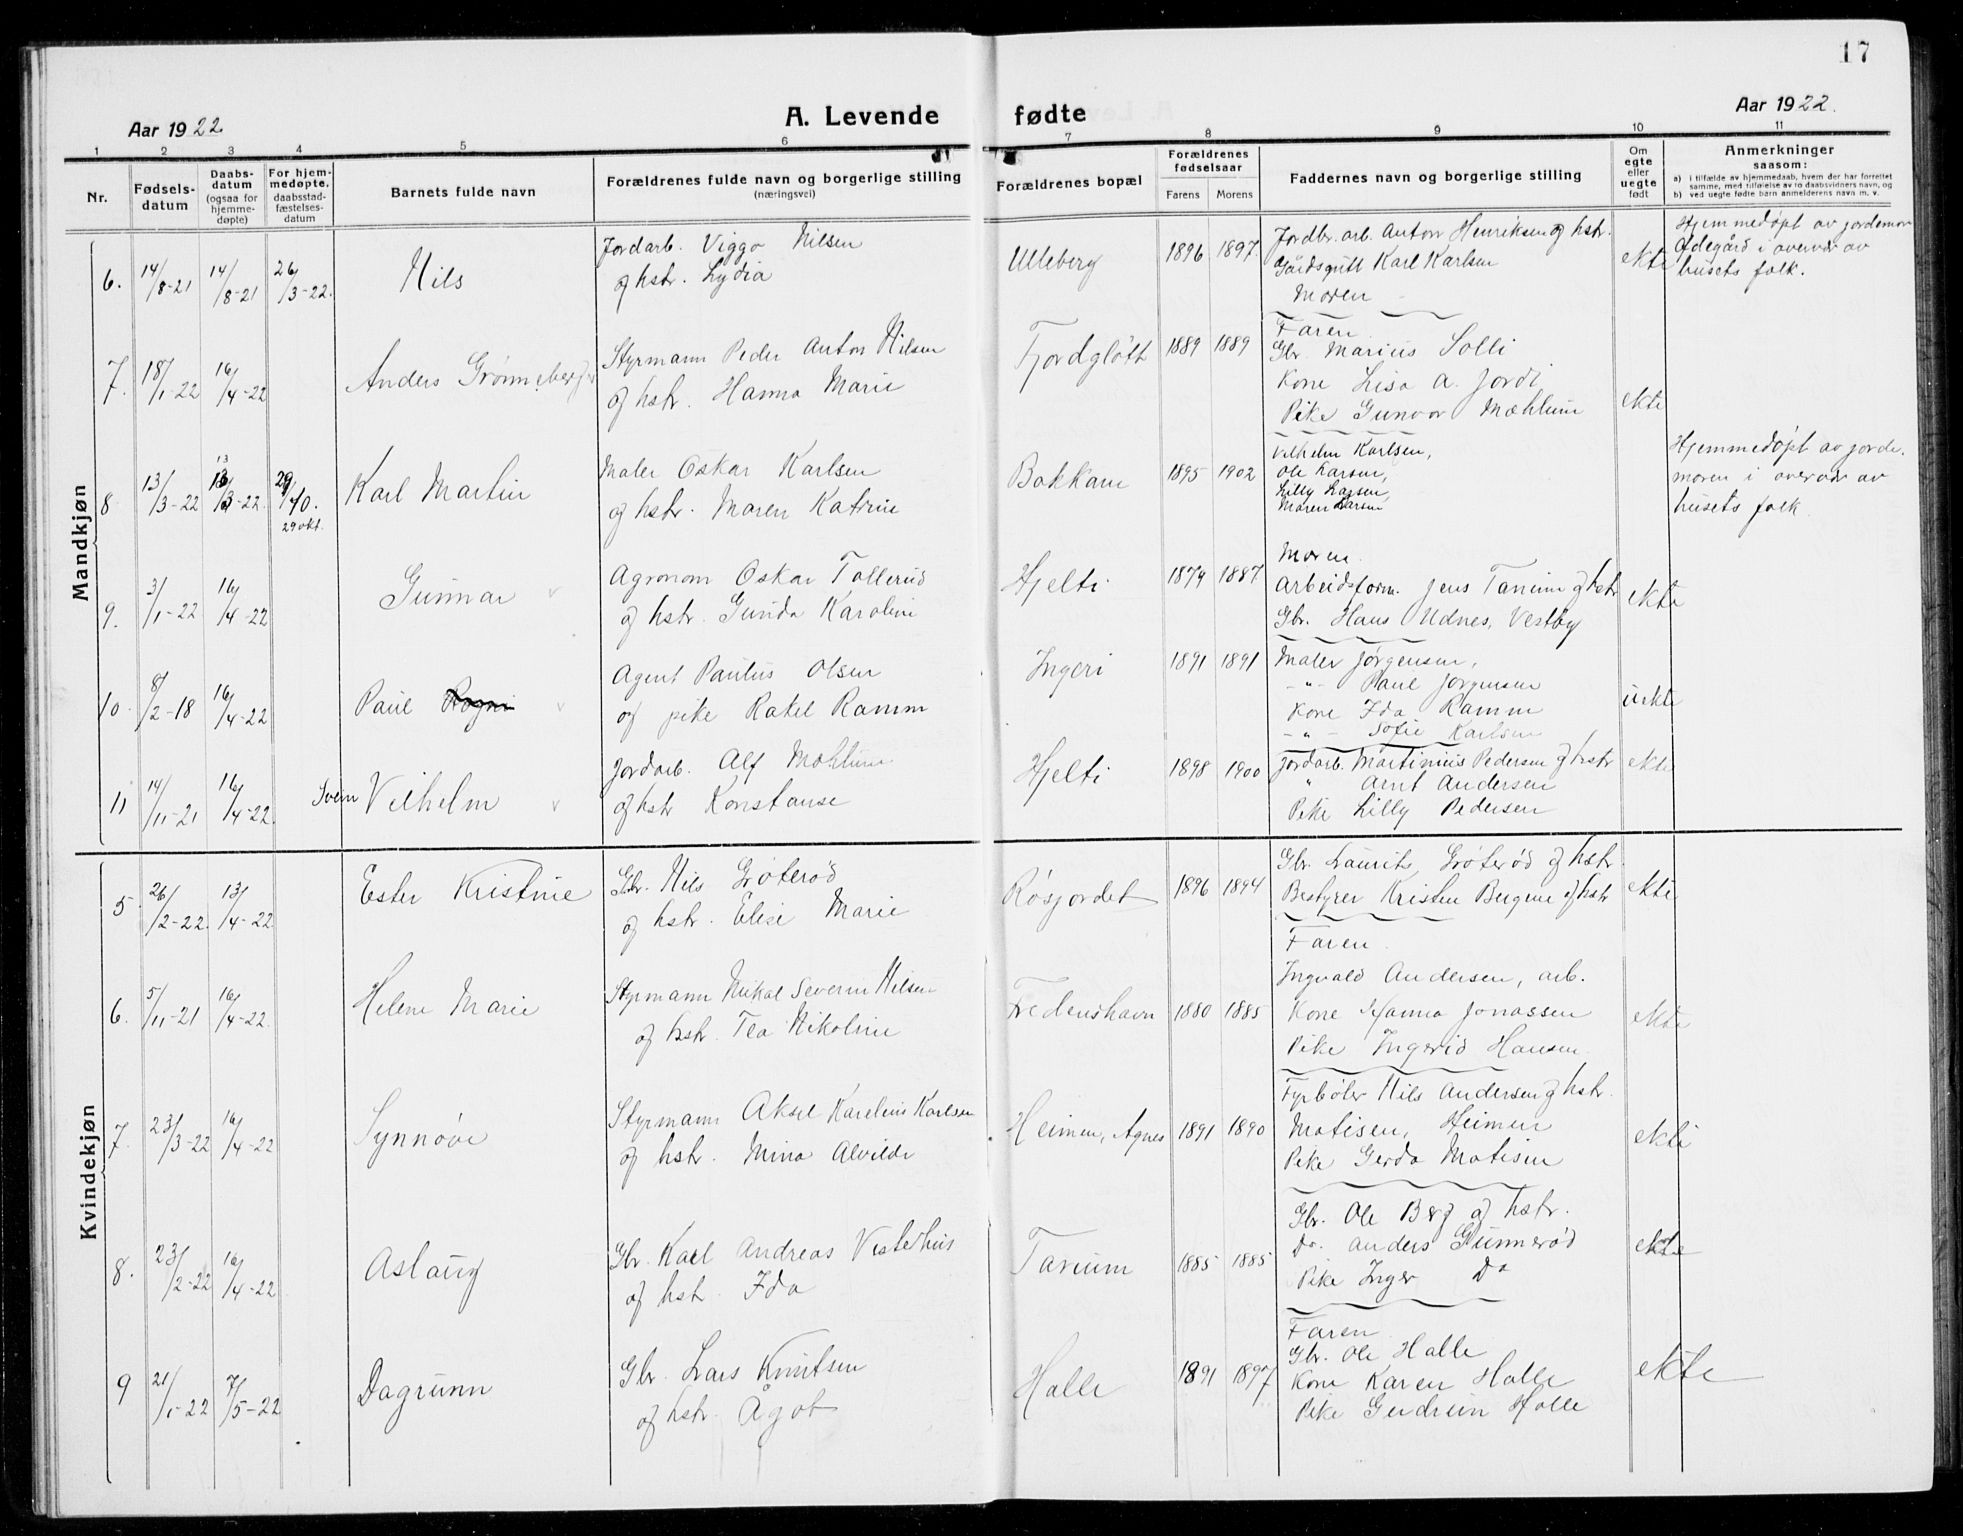 17
Aar 1922
A. Levende fødte
Aar 1922.
1 2 3 4 5 6 7 8 9 10 11
Nr.
Fødsels-
datum
Daabs-
datum
(ogsaa for
hjemme-
døpte)
For hjem-
medøpte.
daabsstad-
fæstelses-
datum
Barnets fulde navn
Forældrenes fulde navn og borgerlige stilling
(næringsvei)
Forældrenes bopæl
Forældrenes
fødselsaar
Farens Morens
Faddernes navn og borgerlige stilling
Om
egte
eller
uegte
født
Anmerkninger
saasom:
a) i tilfælde av hjemmedaab, hvem der har forrettet
samme, med tilføielse av to daabsvidners navn, og
b) ved uegte fødte barn anmelderens navn m. v.
Mandkjøn
6. 14/8-21 14/8-21 26/3-22. Nils
Jordarb. Viggo Nilsen
og hstr. Lydia
Ulleberg 1896 1897.
Jordbr. arb. Anton Henriksen og hstr.
Gårdsgutt Karl Karlsen
Moren
ekte
Hjemmedøpt av jordemor
Ødegård i overvær av
husets folk.
7. 18/1-22 16/4-22 Anders Grønneberg
Styrmann Peder Anton Nilsen
og hstr. Hanna Marie
Fjordgløtt 1889 1889
Faren.
Gbr. Marius Solli
Kone Lisa A. Jordi
Pike Gunvor Mæhlum
ekte
8 13/3-22 13/3-22. 29/10. 29 okt. Karl Martin
Maler Oskar Karlsen
og hstr. Maren Katrine
Bakkane 1895 1902
Vilhelm Karlsen,
Ole Larsen,
Lilly Larsen,
Maren Larsen
Hjemmedøpt av jorde.
moren i overvær av
husets folk.
9. 3/1-22 16/4-22 Gunnar v
Agronom Oskar Tollerud
og hstr. Gunda Karoline
Hjelti 1879 1887
Moren.
Arbeidsform. Jens Tanum og hstr
Gbr. Hans Udnes, Vestby
ekte
10. 8/2-18 16/4-22 Paul v
Agent Paulus Olsen
og pike Rakel Ramm
Ingeri 1891 1891
Maler Jørgensen,
-"- Paul Jørgensen
Kone Ida Ramm
-"- Sofie Karlsen
uekte
11 14/11-21 16/4-22. Svein Vilhelm v
Jordarb. Alf Mæhlum
og hstr Konstanse
Hjelti 1898 1900
Jordarb. Martinius Pedersen og hstr
" Arnt Andersen
Pike Lilly Pedersen
ekte
Kvindekjøn
5. 26/2-22. 13/4-22 Ester Kristine
Gbr. Nils Grøterød
og hstr. Elise Marie
Røsjordet 1896 1894
Gbr. Laurits Grøterød og hstr.
Bestyrer Kristen Bergene og hstr
ekte
6. 5/11-21 16/4-22. Helene Marie
Styrmann Mikal Severin Nilsen
og hstr. Tea Nikoline
Fredenshavn 1880 1885
Faren.
Ingvald Andersen, arb.
Kone Hanna Jonassen
Pike Ingerid Hansen.
ekte
7. 23/3-22 16/4-22 Synnøve
Styrmann Aksel Karelius Karlsen
og hstr. Mina Alvilde
Heimen, Agnes 1891 1890
Fyrbøter Nils Andersen og hstr.
Matisen, Heimen
Pike Gerda Matisen
ekte
8. 23/2-22 16/4-22 Aslaug
Gbr. Karl Andreas Vesterhus
og hstr. Ida
Tanum 1885 1885
Gbr. Ole Berg og hstr.
Do. Anders Gunnerød
Pike Inger Do
ekte
9 21/1-22 7/5-22 Dagrunn
Gbr. Lars Knutsen
og hstr. Ågot
Halle 1891 1897
Faren
Gbr. Ole Halle
Kone Karen Halle
Pike Gudrun Halle
ekte